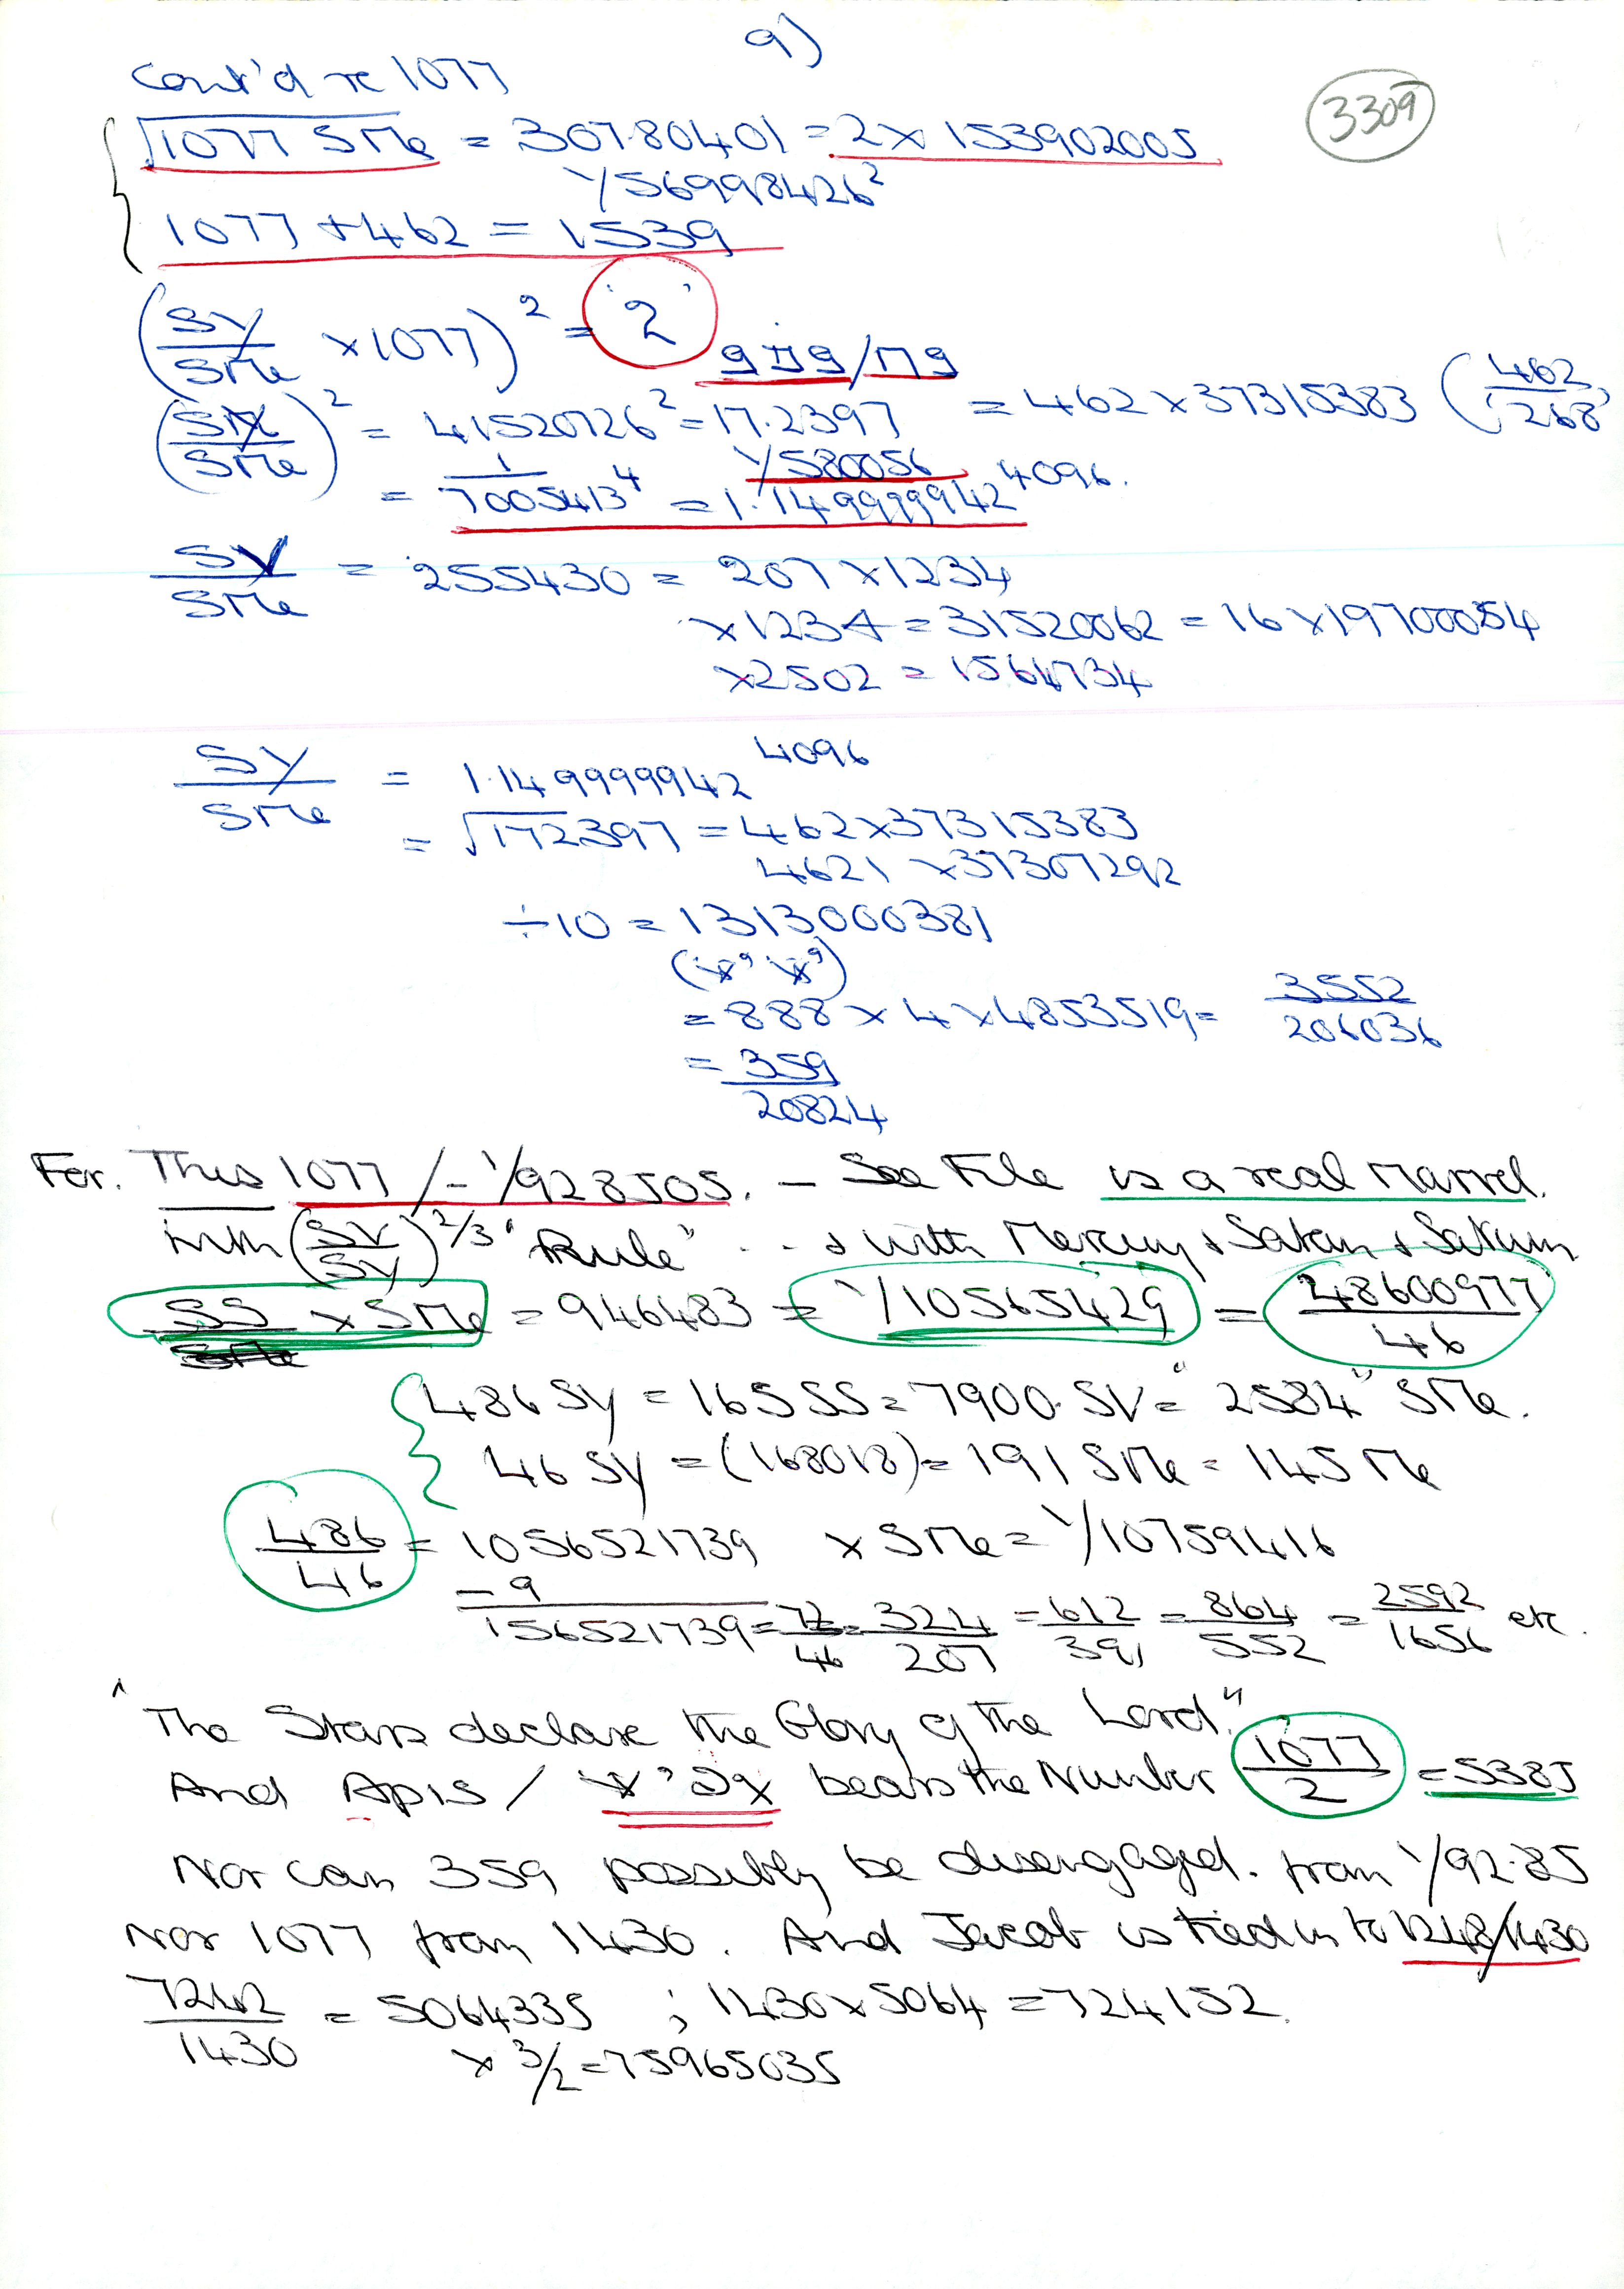 9)
Cont'd re 1077
3309
√1077 SMe = 307.80401 = 2 x 153902005
1/56998426²
1077 + 462 = 1539
(SY/SMe x 1077)² = '2'
(SY/SMe)² = 41520726² = 17.2397 = 462 x 37315383 (462/1268)
1/580056
= 1/7005413⁴ = 1.149999942⁴⁰⁹⁶.
SV/SMe = 255430 = 207 x 1234
x 1234 = 31520062 = 16 x 19700054
x 2502 = 1564734
SY/SMe = 1.149999942⁴⁰⁹⁶
= √172397 = 462 x 37315383
4621 x 37307292
÷ 10 = 1313000381
= 888 x 4 x 4853519 = 3552/206036
= 359/20824
For. This 1077 / - 1/928505. - See File is a real Marvel.
with (SV/SY)^2/3 "Rule" . . . & with Mercury & Satan & Saturn
SS x SMe = 946483 = 1/10565429 = 48600977/46
486 SY = 16 SSS = 7900. SV = "2584" SMe.
46 SY = (168018) = 191 SMe = 145 Me
486/46 = 1056521739 x SMe = 1/10759416
- 9
156521739 = 72/46 = 324/207 = 612/391 = 864/552 = 2592/1656 etc.
"The Stars declare the Glory of the Lord."
And Apis / bears the Number 1077/2 = 5385
Nor can 359 possibly be disengaged. from 1/92.85
Nor 1077 from 1430. And Jacob is tied in to 1248/1430
7242/1430 = 5064335 ; 1430 x 5064 = 724152.
x 3/2 = 75965035